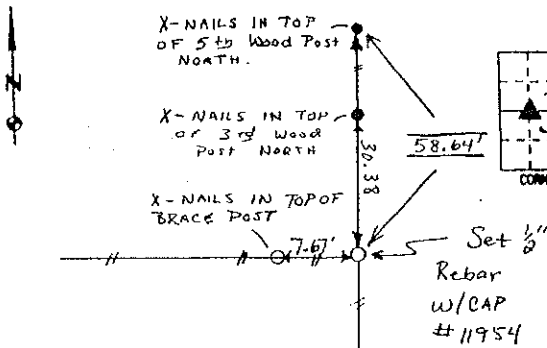 X-NAILS IN TOP
OF 5th Wood Post
NORTH.
N
X-NAILS IN TOP
OF 3rd Wood
Post NORTH
30.38
58.64'
X-NAILS IN TOP OF
BRACE POST
7.67'
Set ½"
Rebar
W/CAP
#11954